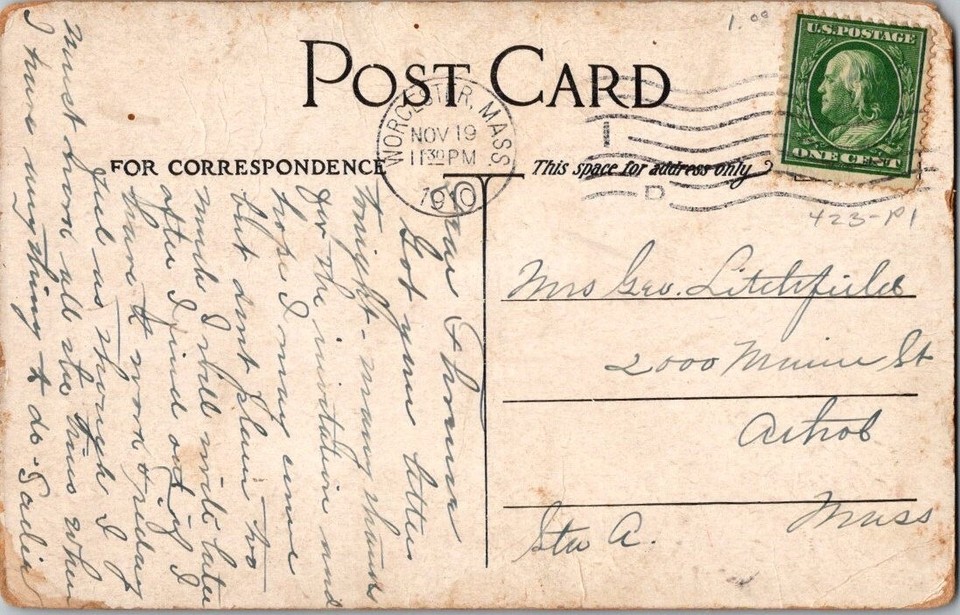 1.00
U.S. POSTAGE
ONE CENT
POST CARD
WORCESTER, MASS.
NOV 19
11 30 PM
1910
I
D
FOR CORRESPONDENCE
This space for address only
423-P1
Dear
Got your letter
tonight - many thanks
for the invitation and
hope I may come
but don't plan too
much I will write later
after I find out if I
have to work Friday
Feel as though I
must have all the time when
I have anything to do -
Mrs Geo. Litchfield
2000 Main St
Athol
Mass
Sta A.